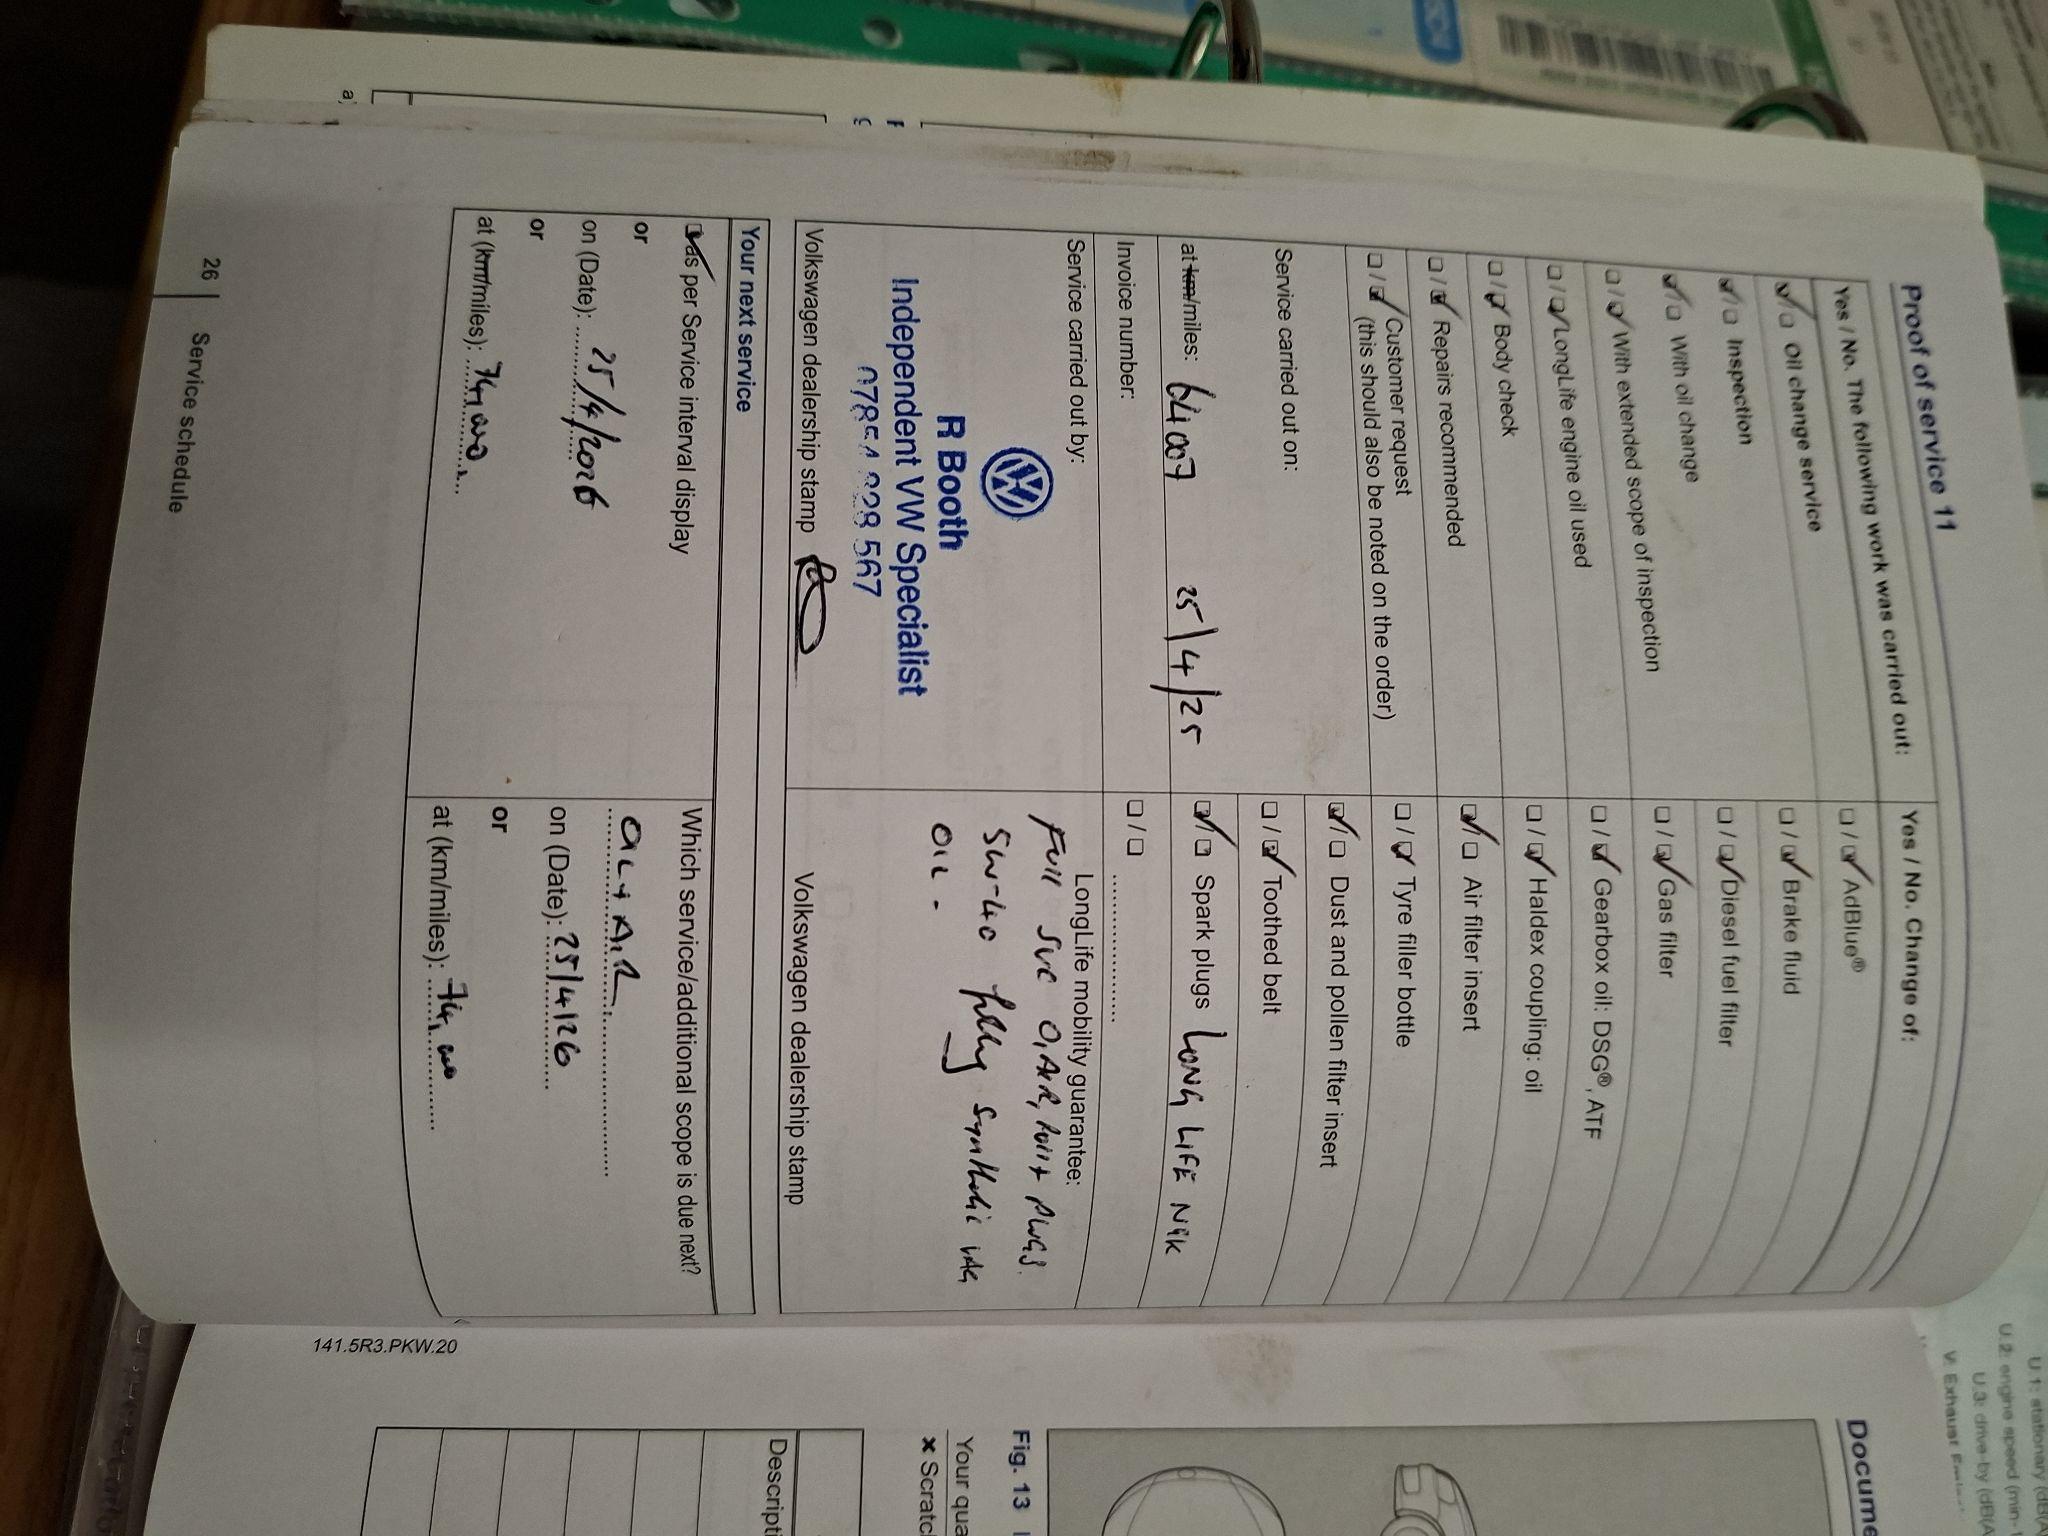 Proof of service 11
Yes / No. The following work was carried out:
☑/☐ Oil change service
☑/☐ Inspection
☑/☐ With oil change
☐/☑ With extended scope of inspection
☐/☑ LongLife engine oil used
☐/☑ Body check
☐/☑ Repairs recommended
☐/☑ Customer request
(this should also be noted on the order)
Service carried out on:
at km/miles: 64007 25/4/25
Invoice number:
Service carried out by:
R Booth
Independent VW Specialist
Volkswagen dealership stamp
Yes / No. Change of:
☐/☑ AdBlue®
☐/☑ Brake fluid
☐/☑ Diesel fuel filter
☐/☑ Gas filter
☐/☑ Gearbox oil: DSG®, ATF
☐/☑ Haldex coupling: oil
☑/☐ Air filter insert
☐/☑ Tyre filler bottle
☑/☐ Dust and pollen filter insert
☐/☑ Toothed belt
☑/☐ Spark plugs LONG LIFE NGK
☐/☐ ....................
LongLife mobility guarantee:
Full SVC O, AIR, Poll+ PLUGS.
5W-40 fully synthetic VAG
OIL -
Volkswagen dealership stamp
Your next service
☑ as per Service interval display
or
on (Date): 25/4/2026
or
at (km/miles): 74,000
Which service/additional scope is due next?
OIL + AIR
on (Date): 25/4/26
or
at (km/miles): 74,000
26 Service schedule
141.5R3.PKW.20
Docume
Fig. 13
Your qua
x Scratc
Descripti
U.1: stationary (dB(A
U.2: engine speed (min-
U.3: drive-by (dB(A